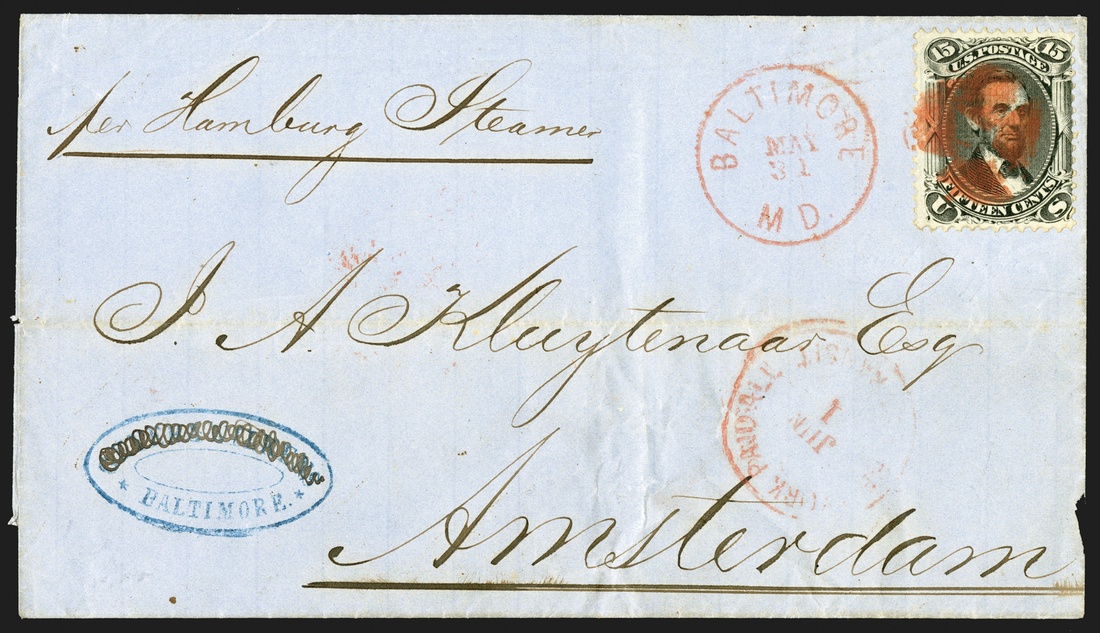 15 15
U.S. POSTAGE
FIFTEEN CENTS
U S
per Hamburg Steamer
BALTIMORE
MAY
31
MD.
J. A Kluytenaar Esq
PAID ALL
1
JUN
BALTIMORE.
Amsterdam